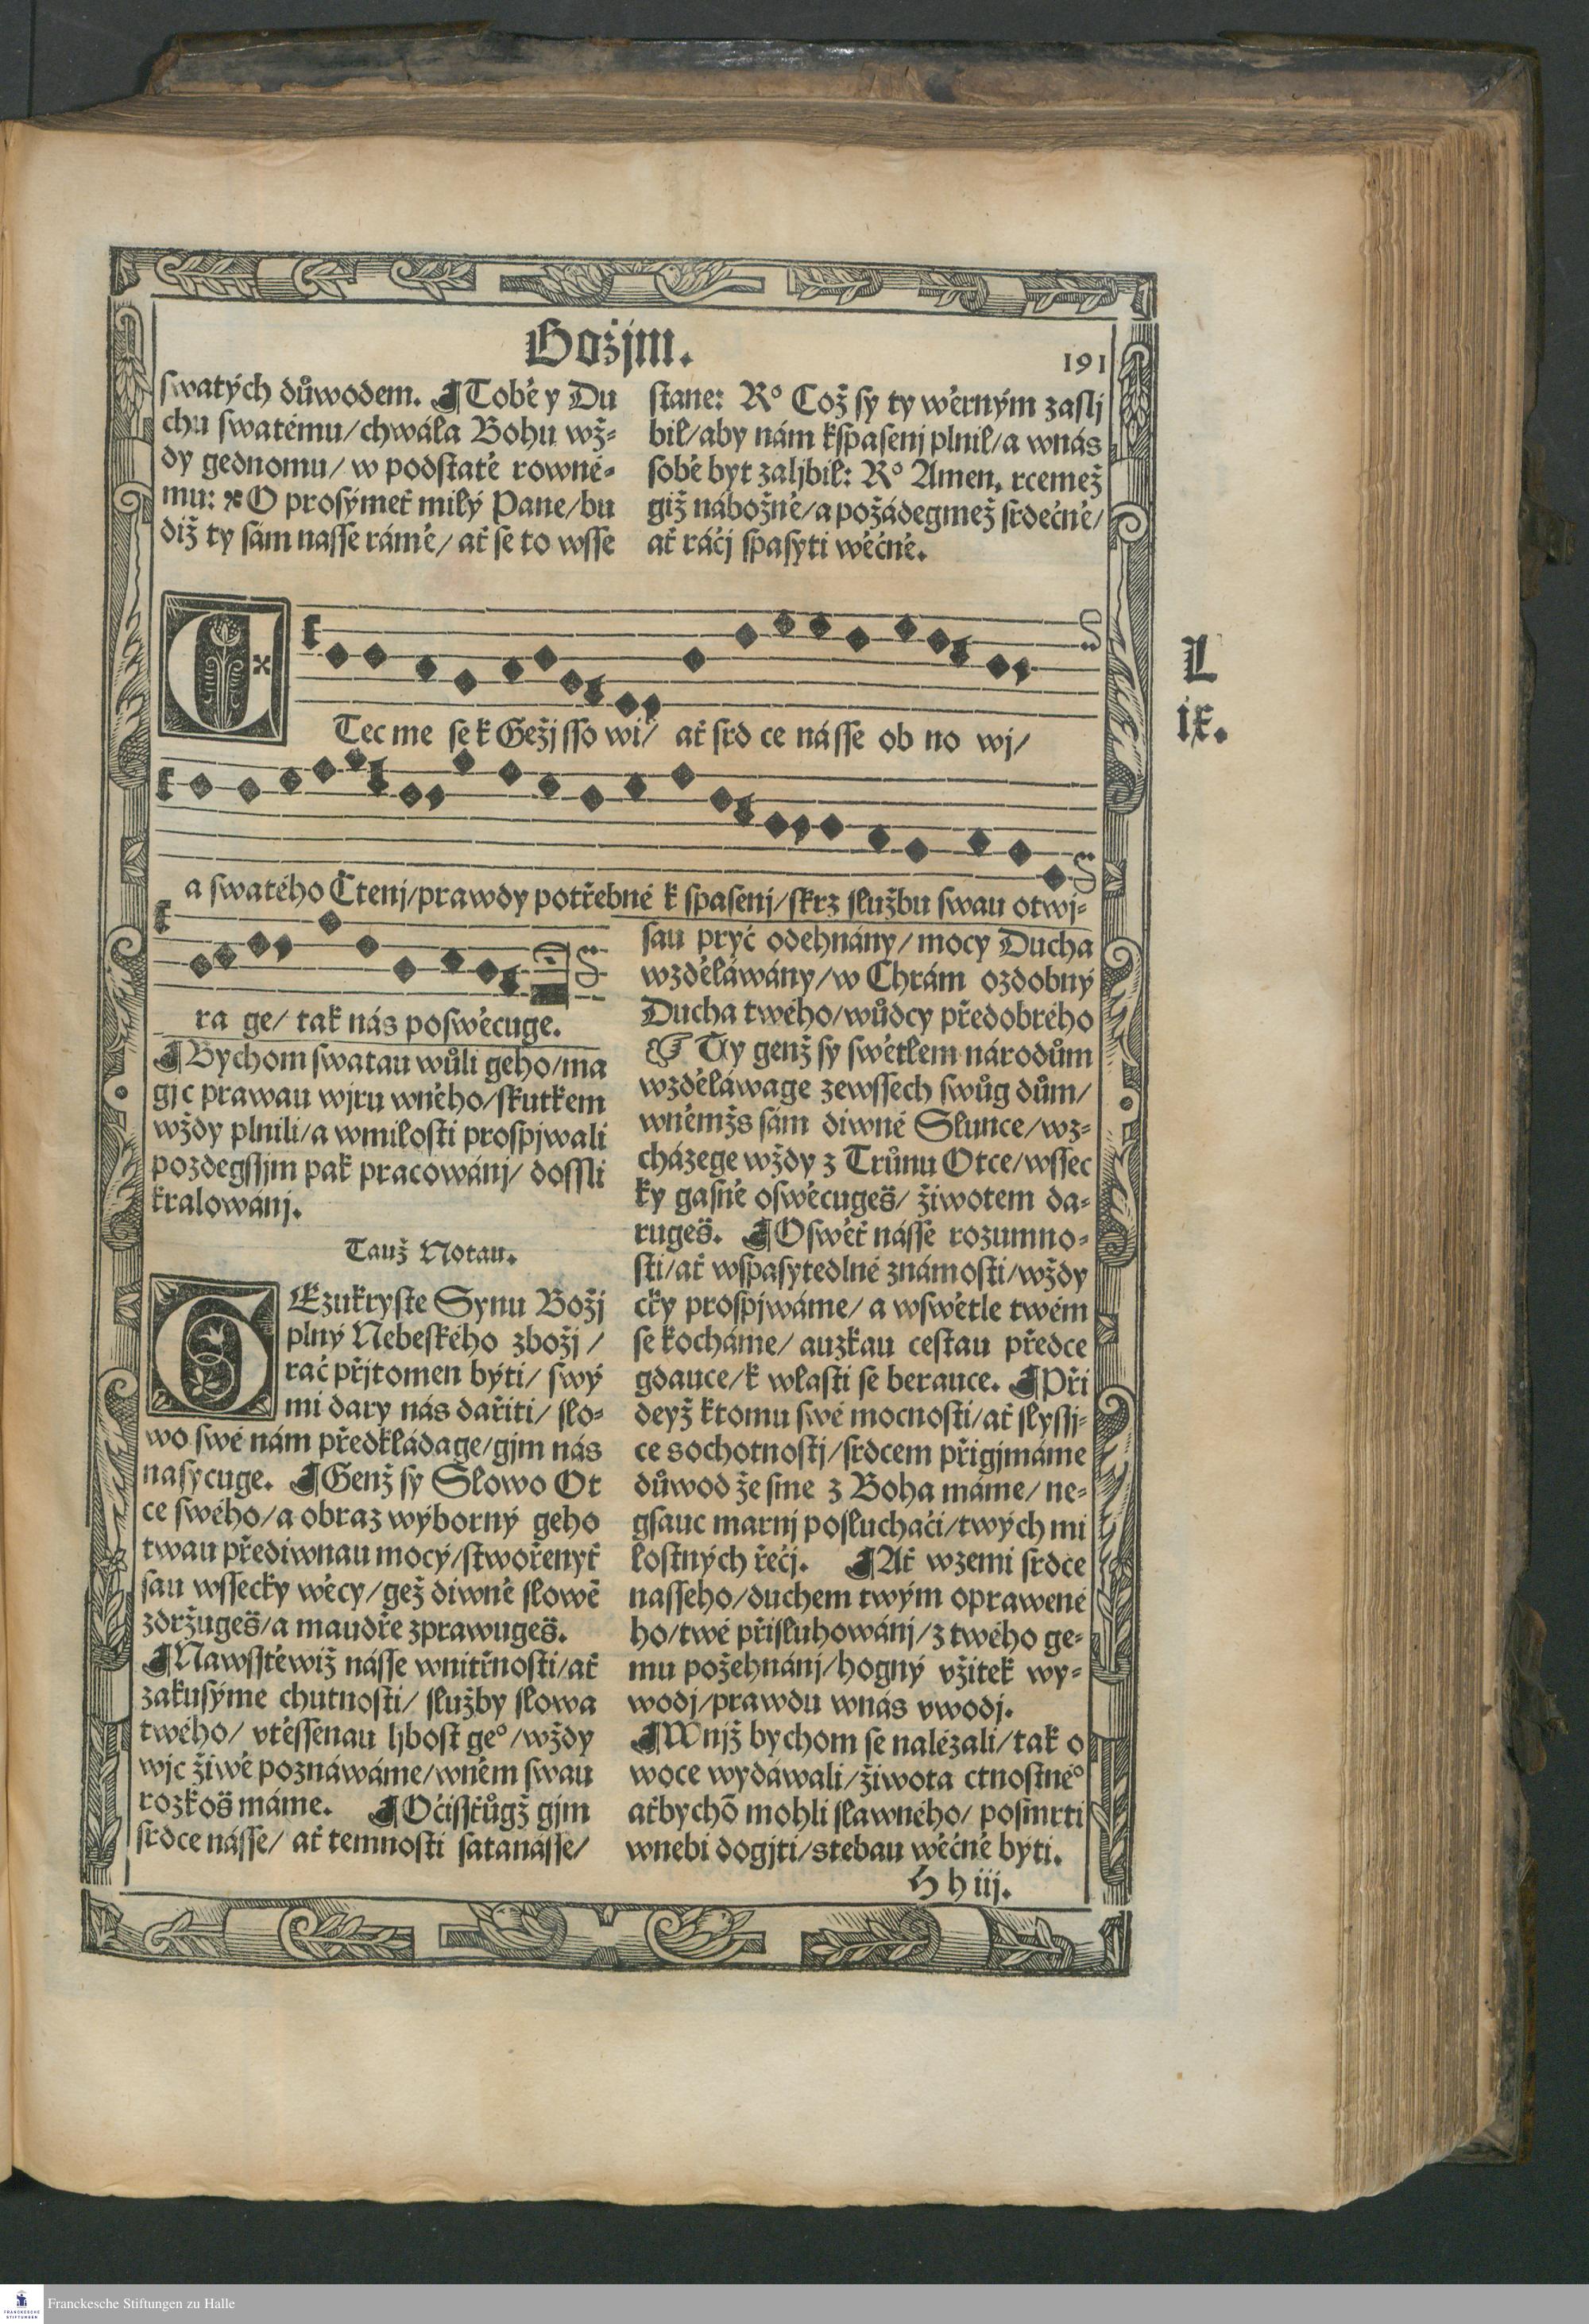 Božjm.
191
swatých důwodem. ¶Tobě y Du
chu swatému/chwála Bohu wž-
dy gednomu/ w podstatě rowné-
mu: O prosýmeť milý Pane/bu
diž ty sám nasse rámě/ ať se to wsse
stane: Rº Což sy ty wěrným zaslj
bil/aby nám kspasenj plnil/a wnás
sobě byt zaljbil: Rº Amen, rcemež
giž nábožně/a požádegmež srdečně/
ať ráčj spasyti wěčně.
L
ix.
CTec me se k Gežj sso wi/ ať srd ce násse ob no wj/
a swatého Čtenj/prawdy potřebné k spasenj/skrz službu swau otwj-
ra ge/ tak nás poswěcuge.
¶Bychom swatau wůli geho/ma
gjc prawau wjru wněho/skutkem
wždy plnili/a wmilosti prospjwali
pozdegssjm pak pracowánj/ dossli
kralowánj.
Tauž Notau.
GEzukryste Synu Božj
plný Nebeského zbožj/
rač přjtomen býti/ swý
mi dary nás dařiti/ slo-
wo swé nám předkládage/gjm nás
nasycuge. ¶Genž sy Slowo Ot
ce swého/a obraz wýborný geho
twau předíwnau mocý/stwořenyť
sau wssecky wěcy/gež diwně slowē
zdržuges̈/a maudře zprawuges̈.
¶Nawsstěwiž násse wnitřnosti/ať
zakusýme chutnosti/ služby slowa
twého/ vtěssenau ljbost geº/wždy
wjc žiwě poznáwáme/wněm swau
rozkos̈ máme. ¶Očisťůgž gjm
srdce násse/ ať temnosti satanásse/
sau pryč odehnány/mocy Ducha
wzděláwány/w Chrám ozdobný
Ducha twého/wůdcy předobrého
☞ Ty genž sy swětlem národům
wzděláwage zewssech swůg dům/
wněmžs sám diwné Slunce/wz-
cházege wždy z Trůnu Otce/wssec
ky gasně oswěcuges̈/ žiwotem da-
ruges̈. ¶Oswěť násse rozumno-
sti/ať wspasytedlné známosti/wždy
cky prospjwáme/ a wswětle twém
se kocháme/ auzkau cestau předce
gdauce/k wlasti se berauce. ¶Při
deyž ktomu swé mocnosti/ať slyssj-
ce sochotnostj/srdcem přigjmáme
důwod že sme z Boha máme/ ne-
gsauc marnj posluchači/twých mi
lostných řečj. ¶Ať wzemi srdce
nasseho/duchem twým oprawené
ho/twé přisluhowánj/z twého ge-
mu požehnánj/hogný vžitek wy-
wodj/prawdu wnás vwodj.
¶Wnjž bychom se nalézali/tak o
woce wydáwali/žiwota ctnostnéº
aťbychō mohli slawného/ posmrti
wnebi dogjti/stebau wěčně býti.
H h iij.
FRANCKESCHE STIFTUNGEN
Franckesche Stiftungen zu Halle